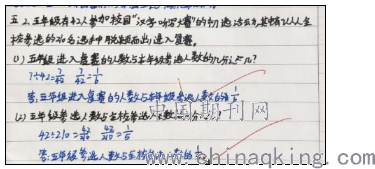 五2.五年级有42人参加校园"汉字听写大赛"的初选活动,其中7人从全
校参选的210名选手中脱颖而出,进入复赛。
(1)五年级进入复赛的人数占五年级参选人数的几分之几?
7÷42=7/42 7/42=1/6
答:五年级进入复赛的人数占五年级参选人数的1/6
(2)五年级参选人数占全校参选人数
42÷210=42/210 42/210=1/5
答:五年级参选人数占全校 人数的1/5
中国期刊网
www.chinaqking.com